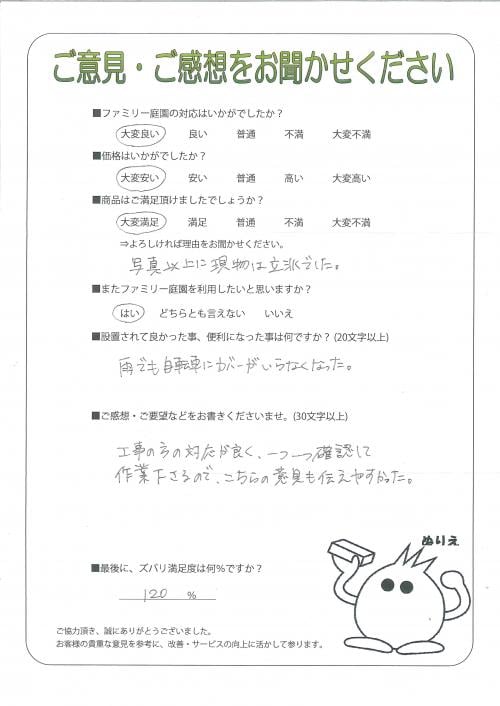 ご意見・ご感想をお聞かせください
■ファミリー庭園の対応はいかがでしたか？
大変良い 良い 普通 不満 大変不満
■価格はいかがでしたか？
大変安い 安い 普通 高い 大変高い
■商品はご満足頂けましたでしょうか？
大変満足 満足 普通 不満 大変不満
⇒よろしければ理由をお聞かせください。
写真以上に現物は立派でした。
■またファミリー庭園を利用したいと思いますか？
はい どちらとも言えない いいえ
■設置されて良かった事、便利になった事は何ですか？(20文字以上)
雨でも自転車にカバーがいらなくなった。
■ご感想・ご要望などをお書きくださいませ。(30文字以上)
工事の方の対応が良く、一つ一つ確認して
作業下さるので、こちらの意見も伝えやすかった。
ぬりえ
■最後に、ズバリ満足度は何％ですか？
120 %
ご協力頂き、誠にありがとうございました。
お客様の貴重な意見を参考に、改善・サービスの向上に活かして参ります。